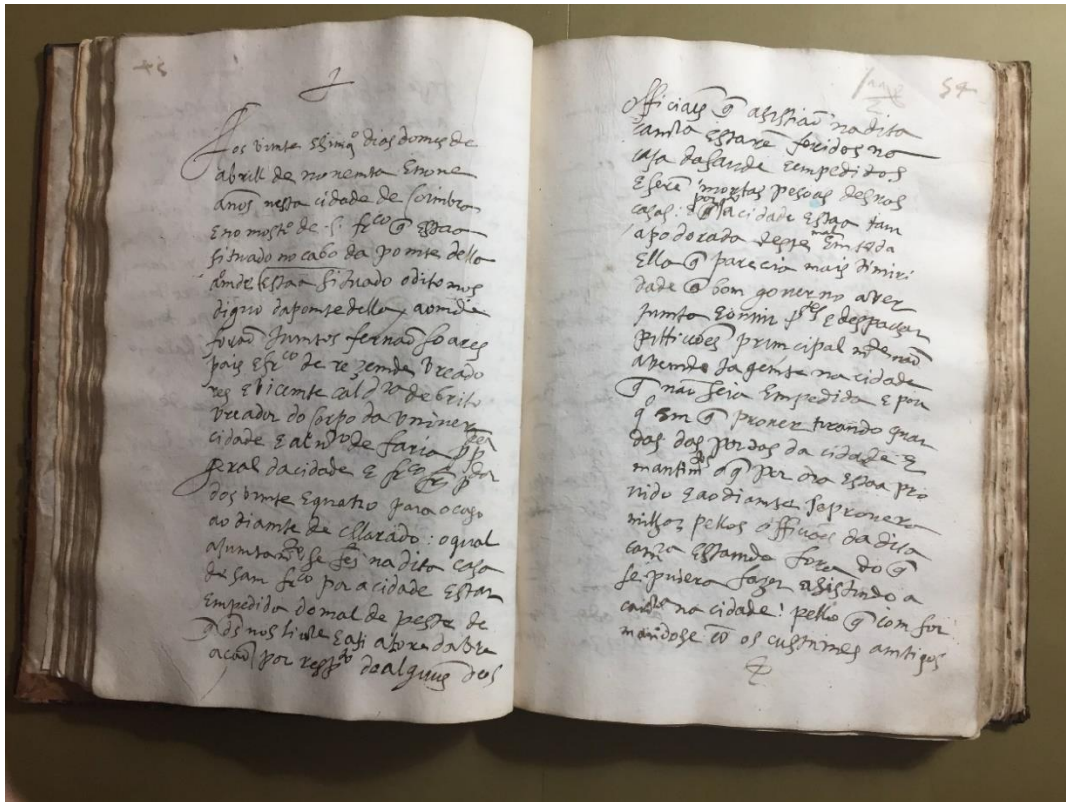 Aos vimte Esimqº dias do mes de
abrill de novemta Enove
annos nesta cidade de Coimbra
Eno mostrº de S. frco q̃ Estaa
situado no cabo da pomte della
omde Estaa situado o dito mos
da pomte della aomde
forão Juntos fernão soares
pais Efrco de rezemde Vreado
res E Vicemte cal dra de brito
Vreador do corpo da Vniver
cidade E de faria
geral da cidade E frco
dos vimte Equatro para o caso
ao diamte decllarado: o qual
ajuntamto se fez na dita casa
de sam frco por a cidade Estar
Empedida do mal de peste de
q̃ Ds nos livre Easi a fora da Vre
ação por respto de alguũs deos
54
officiais q̃ asistião na dita
camra Estarẽ feridos no
casa da saude Eempedidos
E serẽ mortas pesoas de suas
casas: por q̃ a cidade Estaa tam
apodorada deste mal Em toda
Ella q̃ parecia mais timiri
dade q̃ bom governo aver
Junta Eouvir ptes E despachar
pitticões primcipal mte não
avemdo Ja gemte na cidade
q̃ não seia Empedida E pou
qº Em q̃ prover tirando guar
das das portas da cidade E
mantimtos o q̃ por ora Estaa pro
vido Eao diamte se provera
milhor pellos officiais da dita
camra Estamdo fora do q̃
se pudera fazer asistindo a
camra na cidade: pello q̃ com for
mandose cõ os custumes antigos